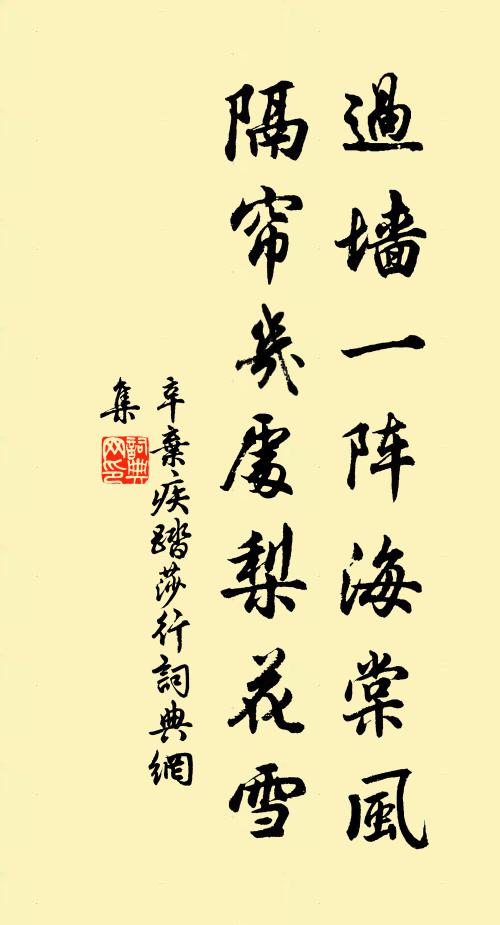 過墙一阵海棠風
隔帘幾處梨花雪
辛棄疾踏莎行詞典網
集
詞典
网印